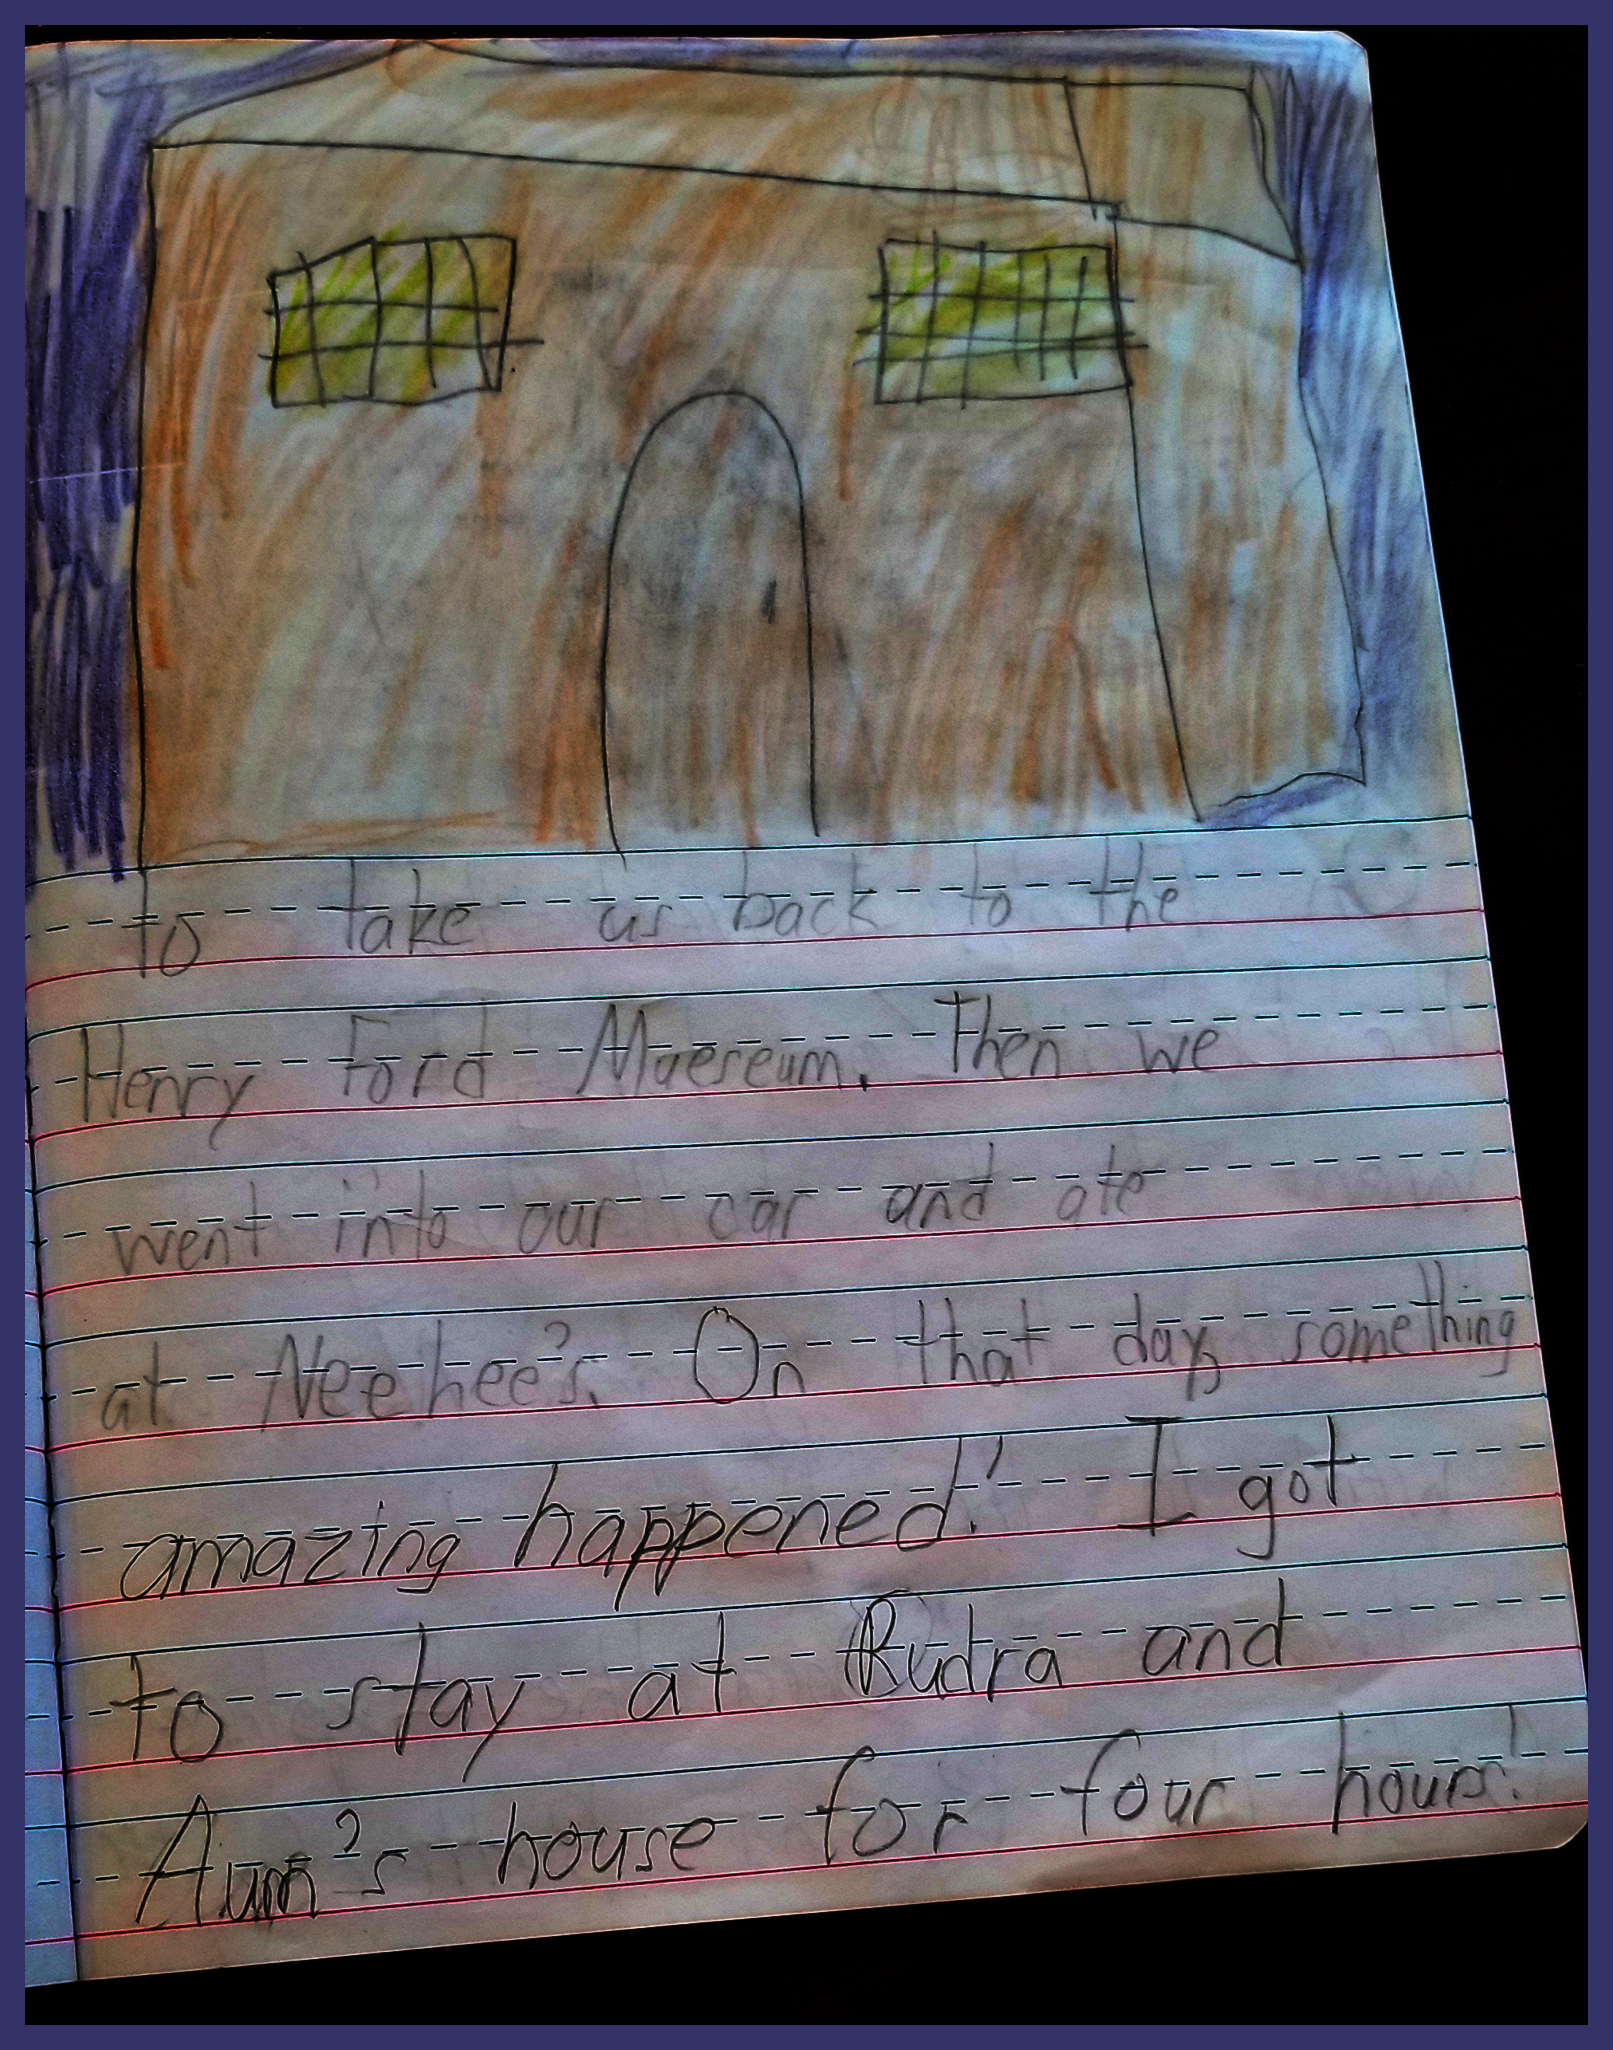 to take us back to the
Henry Ford Muereum. Then we
went into our car and ate
at Neehee's. On that day, something
amazing happened! I got
to stay at Rudra and
Aum's house for four hours!